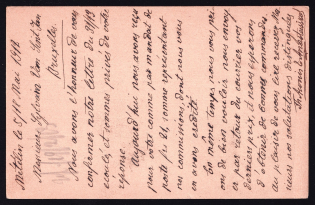 Métélin le 5/18 Mai 1912
Messieurs Sylvain Van
Bruxelles.
Nous avons l'honneur de vous
confirmer notre lettre du
écoulé, et sommes privés de
réponse.
Aujourd'hui nous avons reçu
pour votre compte par mandat de
poste frs 21, somme représentant
nos commissions, dont nous vous
en avons crédité.
En même temps nous vous prions
de bien vouloir nous envoyer
par retour de courrier vos
derniers prix, il nous espérons
d'obtenir de bonnes commandes.
au plaisir de vous lire recevez Mes
sieurs nos salutations distinguées